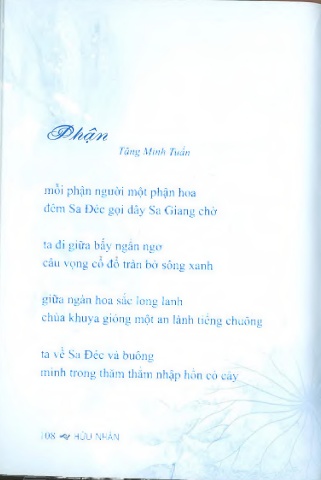 Phận
Tăng Minh Tuấn
mỗi phận người một phận hoa
đêm Sa Đéc gọi dây Sa Giang chờ
ta đi giữa bẫy ngẩn ngơ
câu vọng cổ đổ tràn bờ sông xanh
giữa ngàn hoa sắc long lanh
chùa khuya gióng một an lành tiếng chuông
ta về Sa Đéc và buông
mình trong thăm thẳm nhập hồn cỏ cây
108 HỮU NHÂN